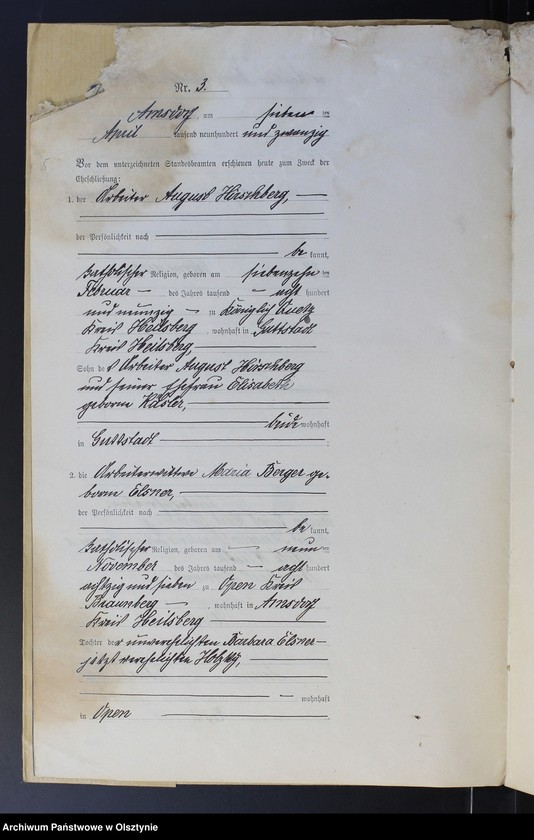 Nr. 3.
Arnsdorf, am siebenten
April tausend neunhundert und zwanzig
Vor dem unterzeichneten Standesbeamten erschienen heute zum Zweck der
Eheschließung:
1. der Arbeiter August Hirschberg,
der Persönlichkeit nach
be kannt,
katholischer Religion, geboren am siebenzehnten
Februar des Jahres tausend acht hundert
und neunzig zu Königlich
Kreis Heilsberg, wohnhaft in Guttstadt
Kreis Heilsberg,
Sohn des Arbeiter August Hirschberg
und seiner Ehefrau Elisabeth
geborne
beide wohnhaft
in Guttstadt
2. die Arbeiterwittwe Maria Berger ge-
borne Elsner,
der Persönlichkeit nach
be kannt,
katholischer Religion, geboren am neunten
November des Jahres tausend acht hundert
achtzig und sieben zu Open Kreis
Braunsberg, wohnhaft in Arnsdorf
Kreis Heilsberg
Tochter der unverehelichten Barbara Elsner
jetzt verehelichten
wohnhaft
in Open
Archiwum Państwowe w Olsztynie